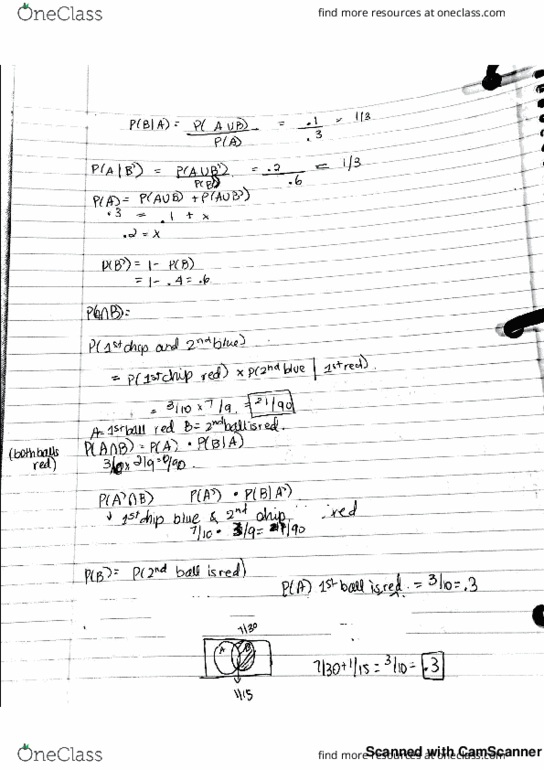 OneClass
find more resources at oneclass.com
P(B|A) = P(A∪B) / P(A) = .1 / .3 = 1/3
P(A|B') = P(A∪B') / P(B') = .2 / .6 = 1/3
P(A) = P(A∪B) + P(A∪B')
.3 = .1 + x
.2 = x
P(B') = 1 - P(B)
= 1 - .4 = .6
P(A∩B) =
P(1st chip and 2nd blue)
= P(1st chip red) x P(2nd blue | 1st red)
= 3/10 x 7/9 = 21/90
A = 1st ball red B = 2nd ball is red.
(both balls red) P(A∩B) = P(A) • P(B|A)
3/10 x 2/9 = 6/90
P(A'∩B) P(A') • P(B|A')
↓ 1st chip blue & 2nd chip red
7/10 • 3/9 = 21/90
P(B) = P(2nd ball is red)
P(A) 1st ball is red = 3/10 = .3
7/30
A B
7/30 + 1/15 = 3/10 = .3
1/15
OneClass
find more resources at oneclass.com
Scanned with CamScanner